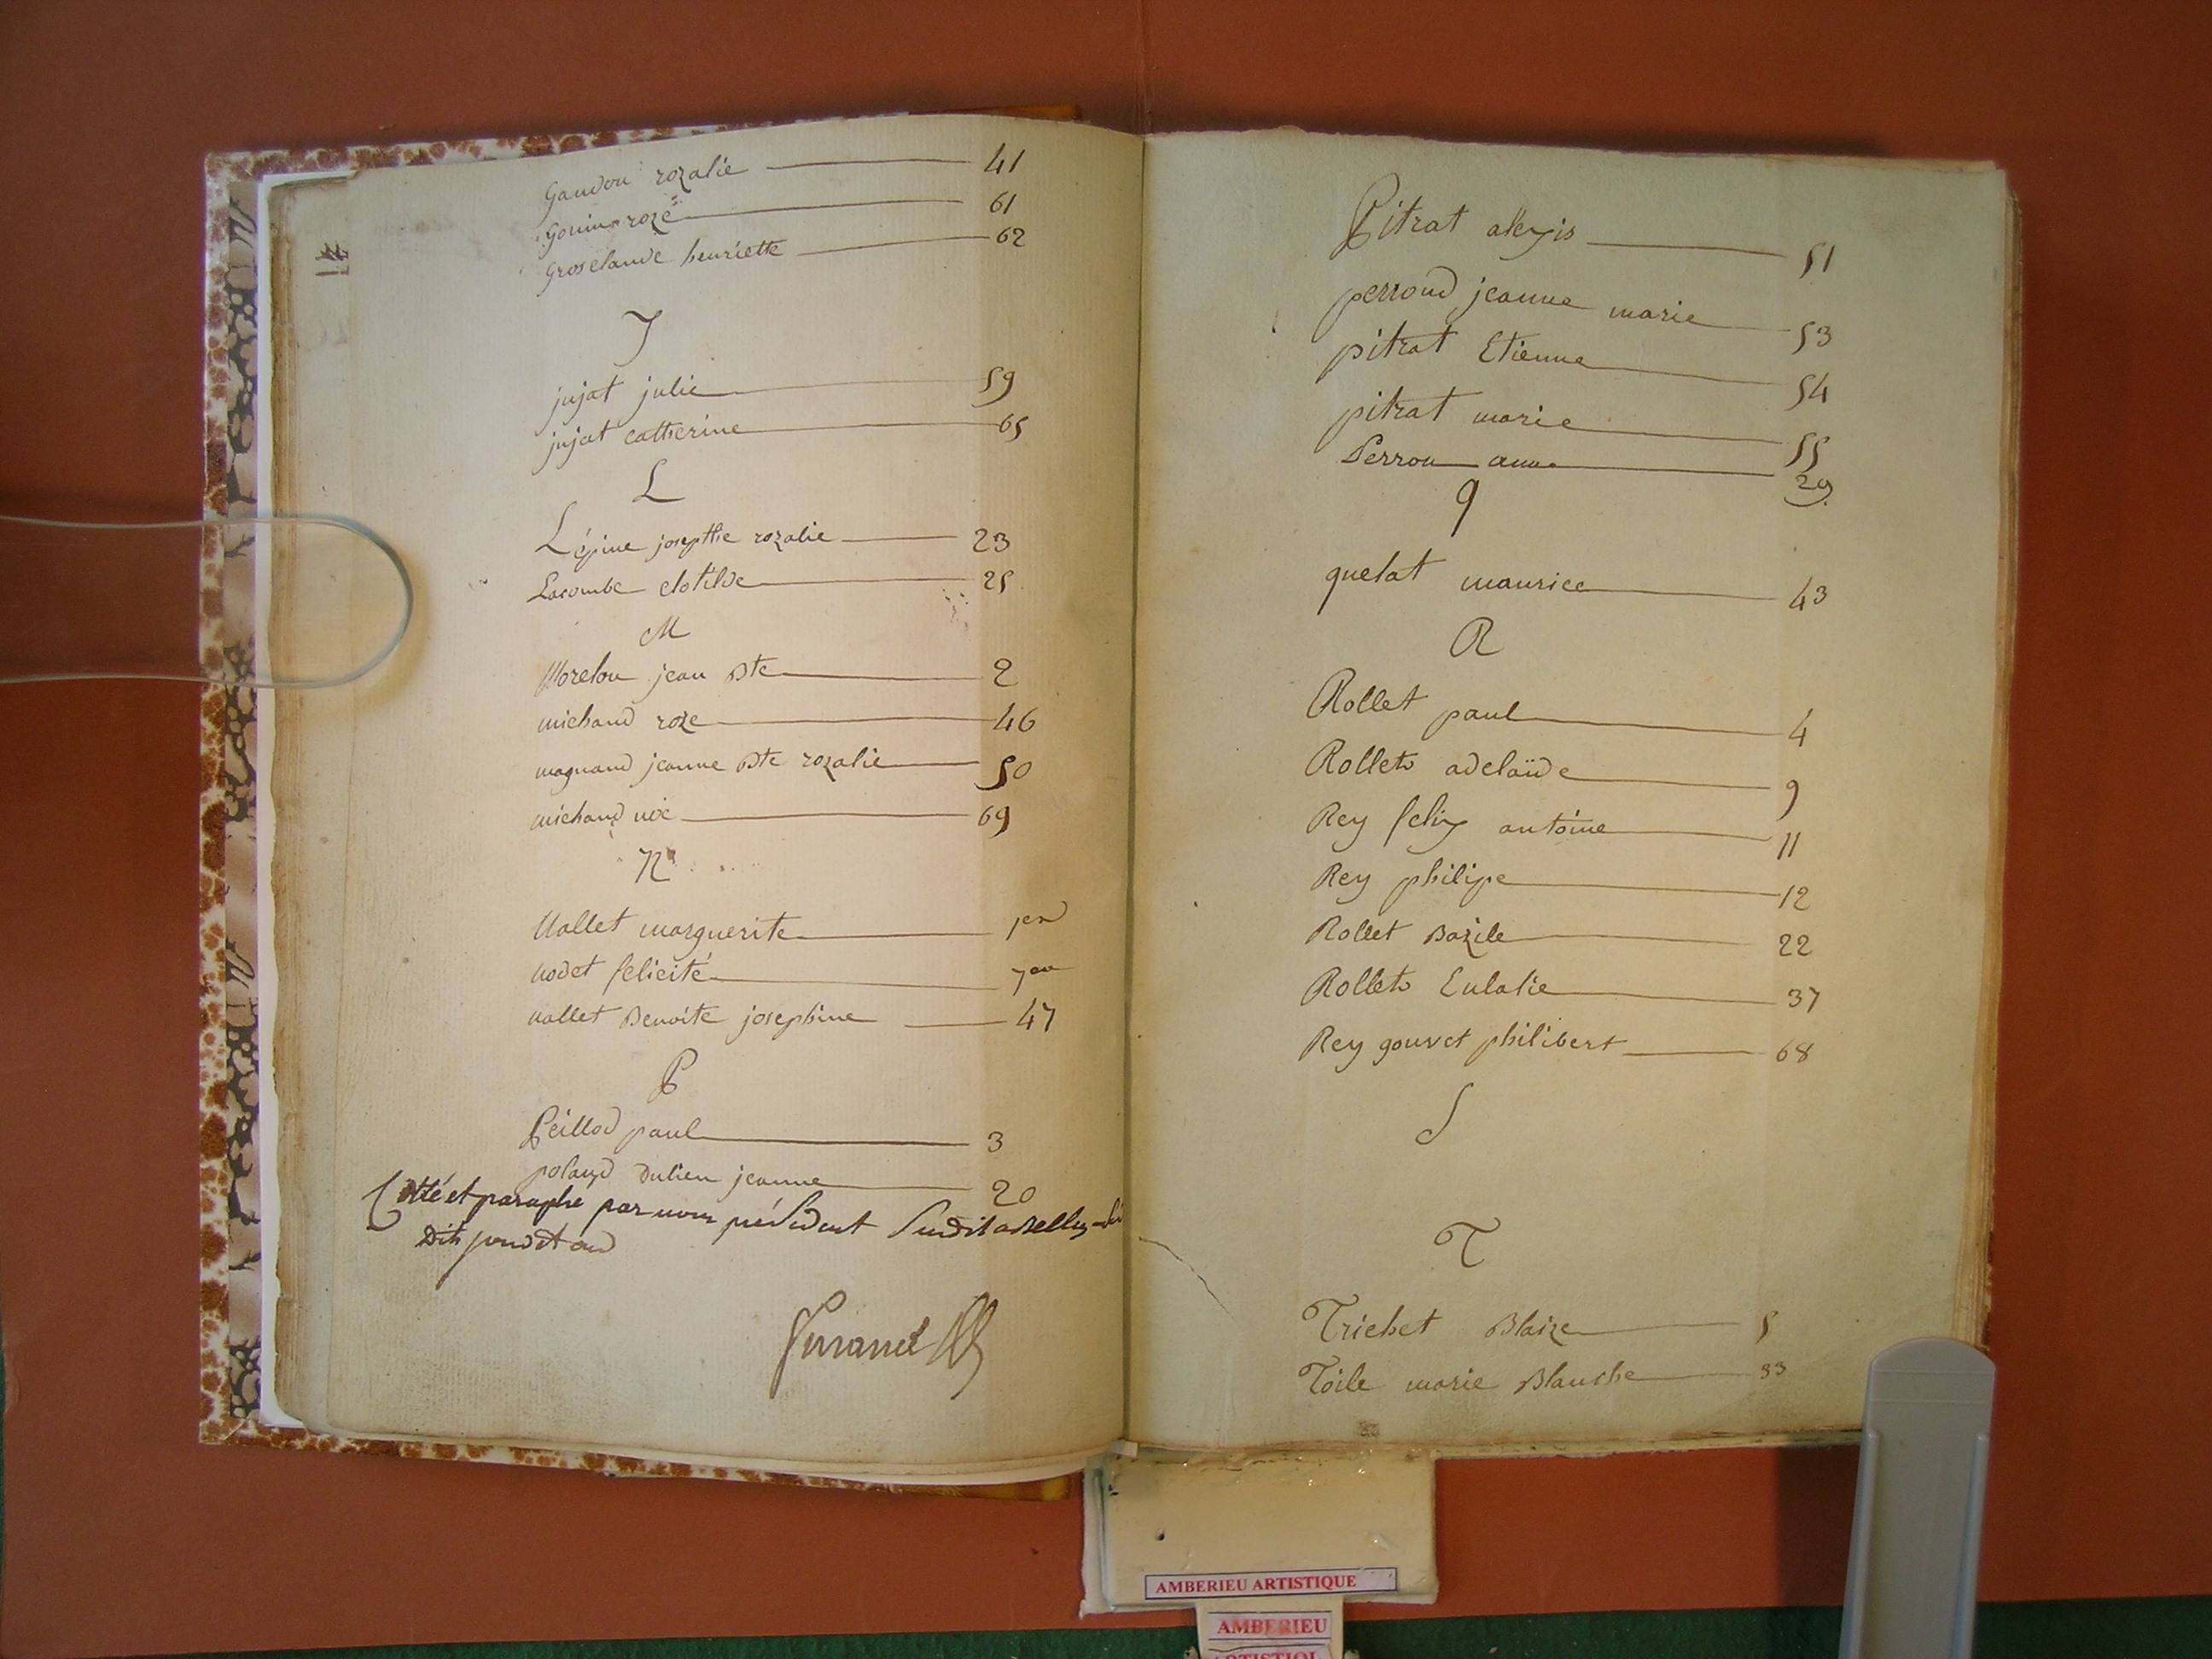 14
Gandou rozalie 41
Gonin roze 61
groselande henriette 62
J
jujat julie 59
jujat catherine 65
L
Lépine josepthe rozalie 23
Lacombe clotilde 25
M
Morelou jean Bte 2
michaud roze 46
magnand jeanne Bte rozalie 50
michaud 69
N
Nallet marguerite 1er
nodet felicité
nallet Benoite josephine 47
P
Peillod paul 3
poland Dulieu jeanne 20
Cotté et paraphé par nous président
Durand
Pitrat alexis 51
perroud jeanne marie 53
pitrat Etienne 54
pitrat marie 55
Perron anne 29
q
quelat maurice 43
R
Rollet paul 4
Rollet adelaïde 9
Rey felix antoine 11
Rey philipe 12
Rollet Bazile 22
Rollet Eulalie 37
Rey gouvet philibert 68
S
T
Trichet Blaize 5
Toile marie Blanche 33
AMBERIEU ARTISTIQUE
AMBERIEU